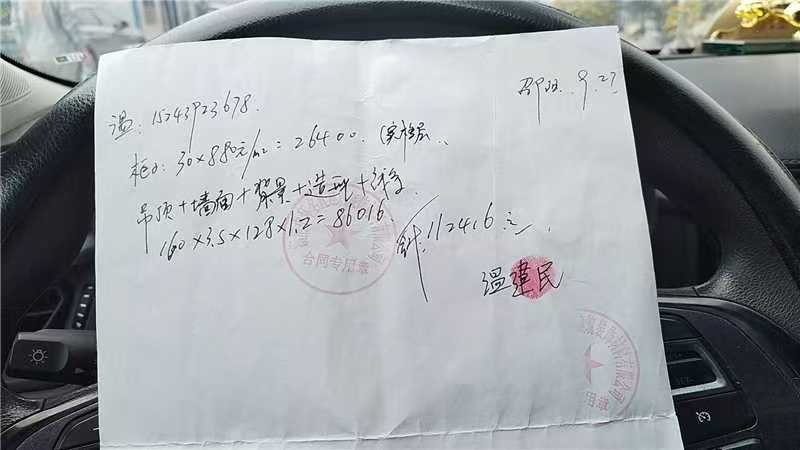 邵阳. 9.27
温: 15243923678.
柜子: 30×880元/m²=26400. (实木层)
吊顶+墙面+背景+造型+线条
160×3.5×128×1.2=86016.
合计: 112416元.
温建民
合同专用章